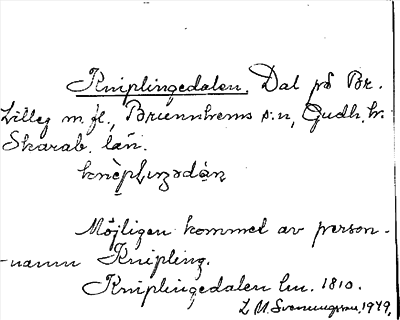 Kniplingedalen, Dal på Br.
Lilleg m.fl., Brunnhems s:n, Gudh. hr.
Skarab. län.
knɛ̀plɩŋədạ̀n
Möjligen kommet av person-
-namn Knipling.
Kniplingedalen hm. 1810.
L M. Svenungsson, 1949.